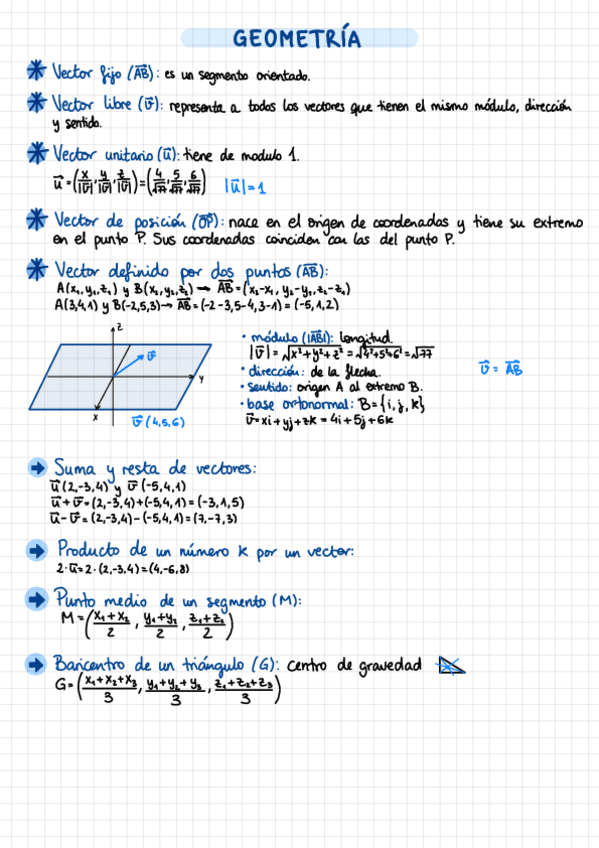 GEOMETRÍA
Vector fijo (AB): es un segmento orientado.
Vector libre (v⃗): representa a todos los vectores que tienen el mismo módulo, dirección
y sentido.
Vector unitario (u⃗): tiene de modulo 1.
u⃗ = (x/|v⃗|, y/|v⃗|, z/|v⃗|) = (4/√77, 5/√77, 6/√77) |u⃗| = 1
Vector de posición (OP): nace en el origen de coordenadas y tiene su extremo
en el punto P. Sus coordenadas coinciden con las del punto P.
Vector definido por dos puntos (AB):
A(x₁,y₁,z₁) y B(x₂,y₂,z₂) → AB = (x₂-x₁, y₂-y₁, z₂-z₁)
A(3,4,1) y B(-2,5,3) → AB = (-2-3,5-4,3-1) = (-5,1,2)
z
v⃗
y
x
v⃗ (4,5,6)
• módulo (|AB|): longitud.
|v⃗| = √x²+y²+z² = √4²+5²+6² = √77
• dirección: de la flecha.
• sentido: origen A al extremo B.
• base ortonormal: B = {i, j, k}
v⃗ = xi + yj + zk = 4i + 5j + 6k
v⃗ = AB
Suma y resta de vectores:
u⃗ (2,-3,4) y v⃗ (-5,4,1)
u⃗ + v⃗ = (2,-3,4)+(-5,4,1) = (-3,1,5)
u⃗ - v⃗ = (2,-3,4) - (-5,4,1) = (7,-7,3)
Producto de un número k por un vector:
2·u⃗ = 2·(2,-3,4) = (4,-6,8)
Punto medio de un segmento (M):
M = (x₁+x₂/2, y₁+y₂/2, z₁+z₂/2)
Baricentro de un triángulo (G): centro de gravedad
G = (x₁+x₂+x₃/3, y₁+y₂+y₃/3, z₁+z₂+z₃/3)